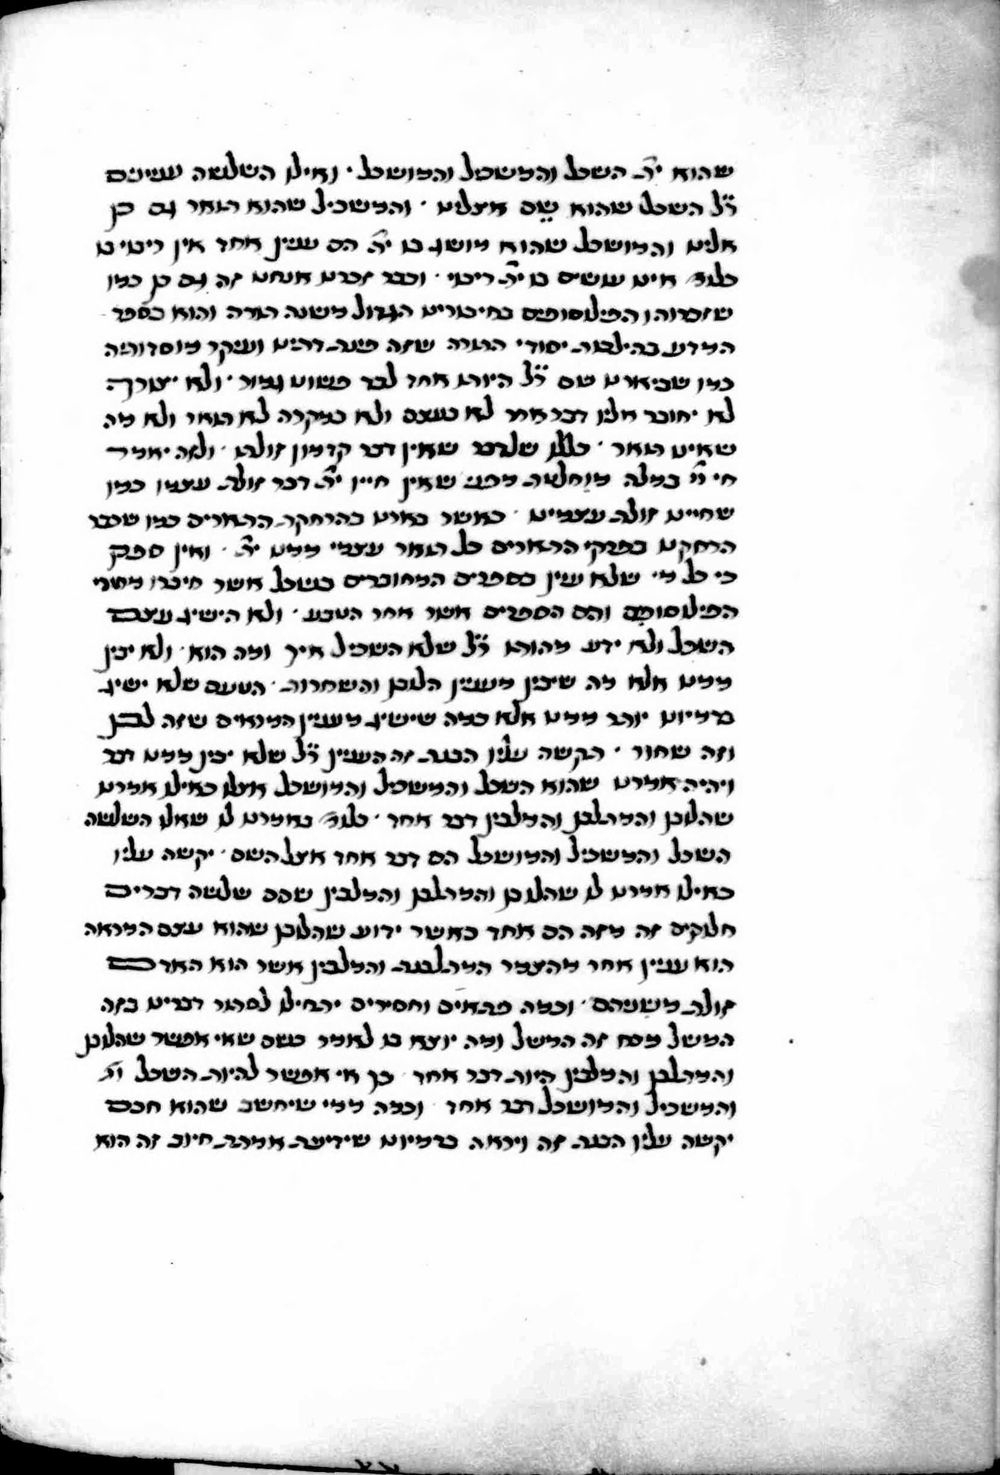 שהוא ית' השכל והמשכיל והמושכל · ואילו השלשה עניינים
ר"ל השכל שהוא שם אצלינו · והמשכיל שהוא תואר גם כן
אלינו והמושכל שהוא מושג בו ית' הם עניין אחד אין ריבוי בו
כלומ' אינו עושים בו ית' ריבוי · וכבר זכרנו אנחנו זה גם כן כמו
שזכרוהו הפילוסופים בחיבורינו הגדול משנה תורה והוא בספר
המדע בהלכות יסודי התורה שזה פינת דתינו ועיקר מוסדותיה
כמו שביארנו שם ר"ל היותו אחד לבד פשוט גמור · ולא יצורף
לא יחובר אליו דבר אחר לא בעצם ולא במקרה לא תואר ולא מה
שאינו תואר · כללו שלדבר שאין דבר קדמון זולתו · ולזה יאמר
חי יי במלה מוחלטת מפני שאין חייו ית' דבר זולת עצמו כמו
שחיינו זולת עצמינו · כאשר בארנו בהרחקת התוארים כמו שכבר
הרחקנו בפרקי התוארים כל תואר עצמי ממנו ית' · ואין ספק
כי כל מי שלא עיין בספרים המחוברים בשכל אשר חיברו מהרי
הפילוסופים והם הספרים אשר אחר הטבע · ולא השיג עצם
השכל ולא ידע מהותו ר"ל שלא השכיל איך ומה הוא · ולא יבין
ממנו אלא מה שיבין מעניין הלובן והשחרות · הטעם שלא ישיג
בדמיונו יותר ממנו אלא כמה שישיג מעניין המראים שזה לבן
וזה שחור · תקשה עליו הבנת זה העניין ר"ל שלא יבין ממנו דבר
ויהיה אמרנו שהוא השכל והמשכיל והמושכל אצלו כאילו אמרנו
שהלובן והמתלבן והמלבין דבר אחד · כלומ' באמרנו לו שאלו השלשה
השכל והמשכיל והמושכל הם דבר אחד אצל השם · יקשה עליו
כאילו אמרנו לו שהלובן והמתלבן והמלבין שהם שלשה דברים
חלוקים זה מזה הם אחד כאשר ידוע שהלובן שהוא עצם המראה
הוא עניין אחר מהצמר המתלבנת והמלבין אשר הוא האדם
זולת משניהם · וכמה פתאים וחסידים יתחילו לסתור דברינו בזה
המשל מכח זה המשל ומה יוצא בו לאמר כשם שאי אפשר שהלובן
והמתלבן והמלבין היות דבר אחד · כך אי אפשר להיות השכל ית'
והמשכיל והמושכל דבר אחד · וכמה ממי שיחשב שהוא חכם
יקשה עליו הבנת זה ויראה בדמיונו שידיעת אמתת חיוב זה הוא